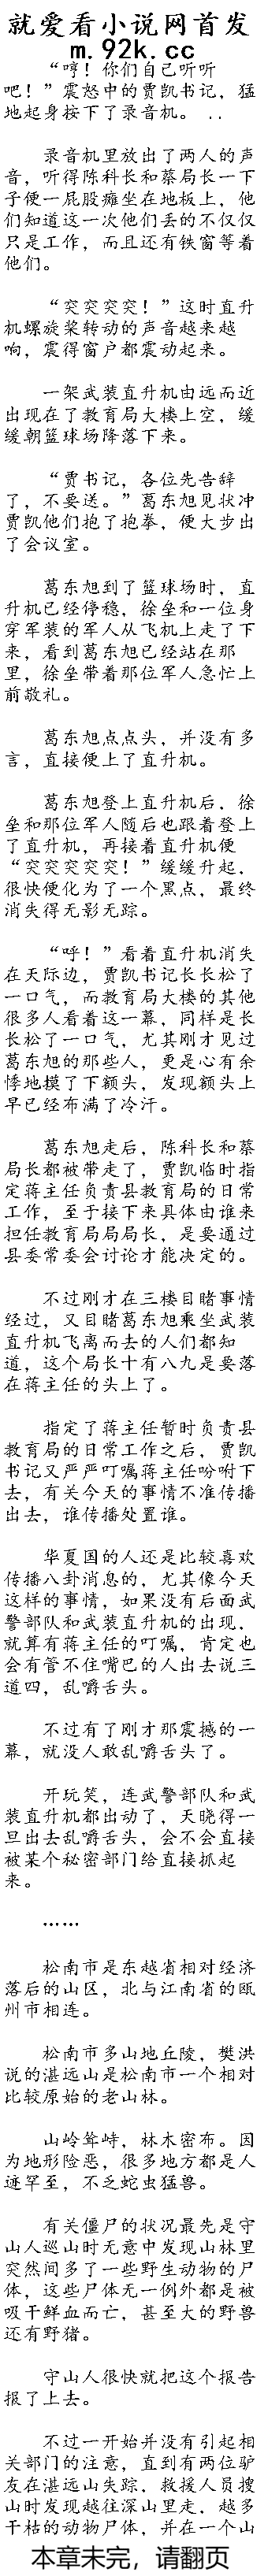 就爱看小说网首发
m.92k.cc
“哼！你们自己听听
吧！”震怒中的贾凯书记，猛
地起身按下了录音机。 ..
录音机里放出了两人的声
音，听得陈科长和蔡局长一下
子便一屁股瘫坐在地板上，他
们知道这一次他们丢的不仅仅
只是工作，而且还有铁窗等着
他们。
“突突突突！”这时直升
机螺旋桨转动的声音越来越
响，震得窗户都震动起来。
一架武装直升机由远而近
出现在了教育局大楼上空，缓
缓朝篮球场降落下来。
“贾书记，各位先告辞
了，不要送。”葛东旭见状冲
贾凯他们抱了抱拳，便大步出
了会议室。
葛东旭到了篮球场时，直
升机已经停稳，徐垒和一位身
穿军装的军人从飞机上走了下
来，看到葛东旭已经站在那
里，徐垒带着那位军人急忙上
前敬礼。
葛东旭点点头，并没有多
言，直接便上了直升机。
葛东旭登上直升机后，徐
垒和那位军人随后也跟着登上
了直升机，再接着直升机便
“突突突突突！”缓缓升起，
很快便化为了一个黑点，最终
消失得无影无踪。
“呼！”看着直升机消失
在天际边，贾凯书记长长松了
一口气，而教育局大楼的其他
很多人看着这一幕，同样是长
长松了一口气，尤其刚才见过
葛东旭的那些人，更是心有余
悸地摸了下额头，发现额头上
早已经布满了冷汗。
葛东旭走后，陈科长和蔡
局长都被带走了，贾凯临时指
定蒋主任负责县教育局的日常
工作，至于接下来具体由谁来
担任教育局局长，是要通过
县委常委会讨论才能决定的。
不过刚才在三楼目睹事情
经过，又目睹葛东旭乘坐武装
直升机飞离而去的人们都知
道，这个局长十有八九是要落
在蒋主任的头上了。
指定了蒋主任暂时负责县
教育局的日常工作之后，贾凯
书记又严严叮嘱蒋主任吩咐下
去，有关今天的事情不准传播
出去，谁传播处置谁。
华夏国的人还是比较喜欢
传播八卦消息的，尤其像今天
这样的事情，如果没有后面武
警部队和武装直升机的出现，
就算有蒋主任的叮嘱，肯定也
会有管不住嘴巴的人出去说三
道四，乱嚼舌头。
不过有了刚才那震撼的一
幕，就没人敢乱嚼舌头了。
开玩笑，连武警部队和武
装直升机都出动了，天晓得一
旦出去乱嚼舌头，会不会直接
被某个秘密部门给直接抓起
来。
……
松南市是东越省相对经济
落后的山区，北与江南省的瓯
州市相连。
松南市多山地丘陵，樊洪
说的湛远山是松南市一个相对
比较原始的老山林。
山岭耸峙，林木密布。因
为地形险恶，很多地方都是人
迹罕至，不乏蛇虫猛兽。
有关僵尸的状况最先是守
山人巡山时无意中发现山林里
突然间多了一些野生动物的尸
体，这些尸体无一例外都是被
吸干鲜血而亡，甚至大的野兽
还有野猪。
守山人很快就把这个报告
报了上去。
不过一开始并没有引起相
关部门的注意，直到有两位驴
友在湛远山失踪，救援人员搜
山时发现越往深山里走，越多
干枯的动物尸体，并在一个山
本章未完，请翻页